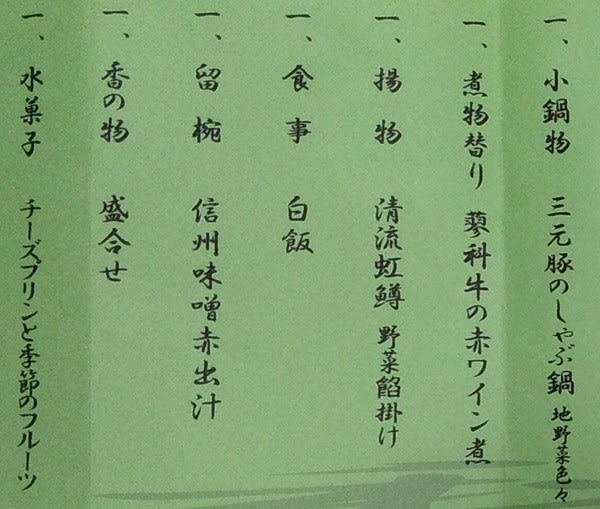 一、小鍋物 三元豚のしゃぶ鍋 地野菜色々
一、煮物替り 蓼科牛の赤ワイン煮
一、揚物 清流虹鱒 野菜餡掛け
一、食事 白飯
一、留椀 信州味噌赤出汁
一、香の物 盛合せ
一、水菓子 チーズプリンと季節のフルーツ